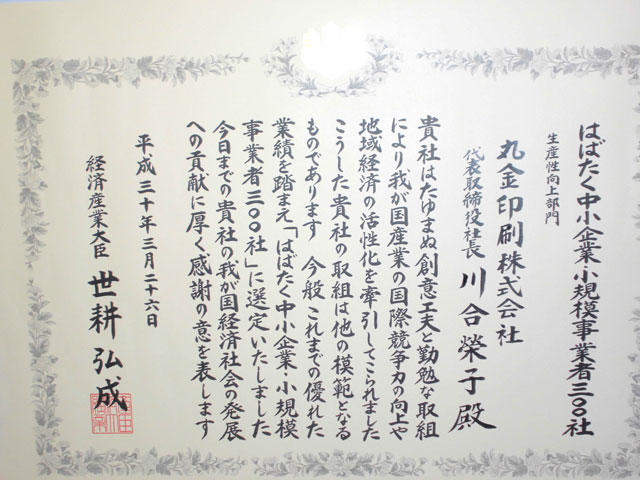 はばたく中小企業・小規模事業者三〇〇社
生産性向上部門
丸金印刷株式会社
代表取締役社長 川合榮子殿
貴社はたゆまぬ創意工夫と勤勉な取組
により我が国産業の国際競争力の向上や
地域経済の活性化を牽引してこられました
こうした貴社の取組は他の模範となる
ものであります 今般これまでの優れた
業績を踏まえ「はばたく中小企業・小規模
事業者三〇〇社」に選定いたしました
今日までの貴社の我が国経済社会の発展
への貢献に厚く感謝の意を表します
平成三十年三月二十六日
経済産業大臣 世耕弘成